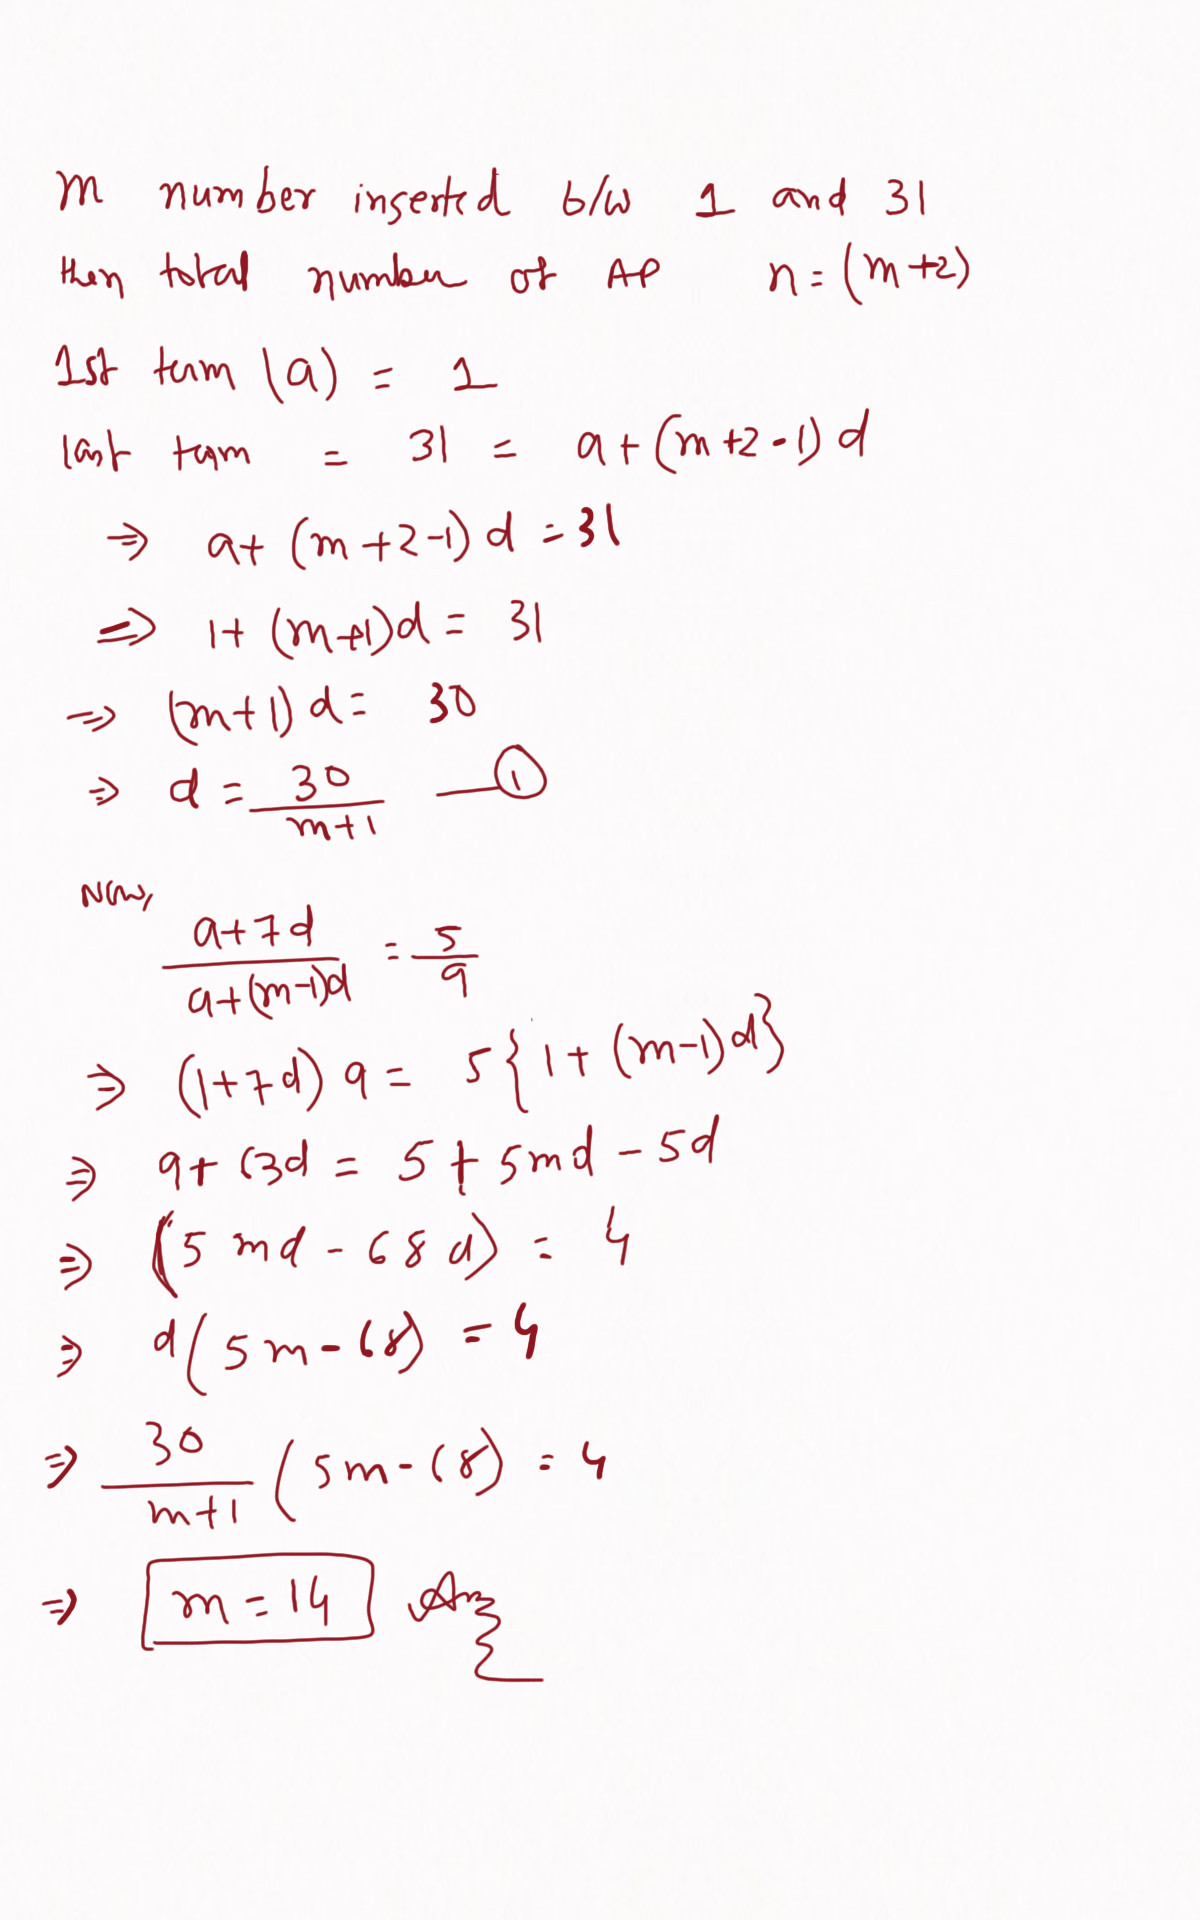 m number inserted b/w 1 and 31
then total number of AP n = (m+2)
1st term (a) = 1
last term = 31 = a + (m+2-1) d
⇒ a + (m+2-1) d = 31
⇒ 1 + (m+1)d = 31
⇒ (m+1) d = 30
⇒ d = 30/(m+1) — ①
Now,
(a+7d)/(a+(m-1)d) = 5/9
⇒ (1+7d) 9 = 5{1 + (m-1)d}
⇒ 9 + 63d = 5 + 5md - 5d
⇒ (5md - 68d) = 4
⇒ d(5m - 68) = 4
⇒ 30/(m+1) (5m - 68) = 4
⇒ m = 14 Ans